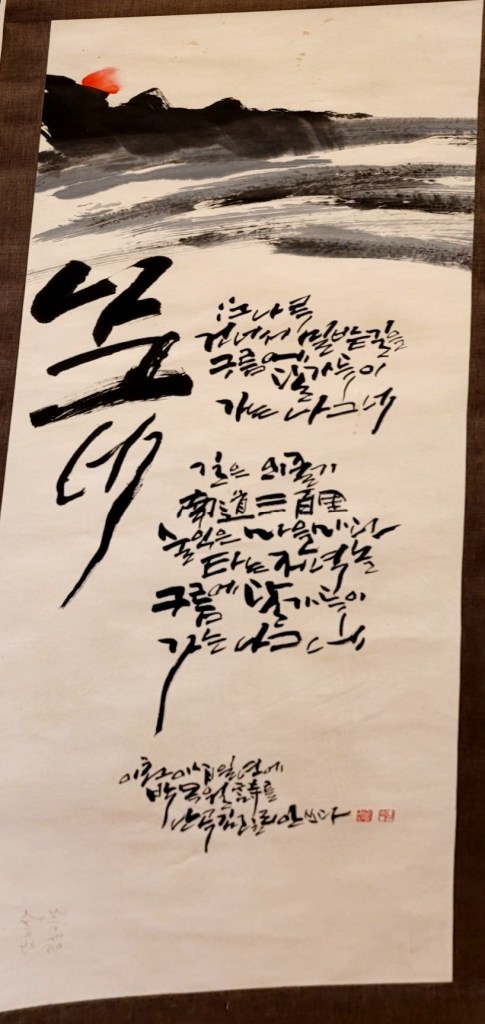 나그네
江나루
건너서 밀밭길을
구름에
달가듯이
가는 나그네
길은 외줄기
南道三百里
술익은 마을마다
타는 저녁놀
구름에 달가듯이
가는 나그네
이천이십일년에
박목월 詩를
난곡